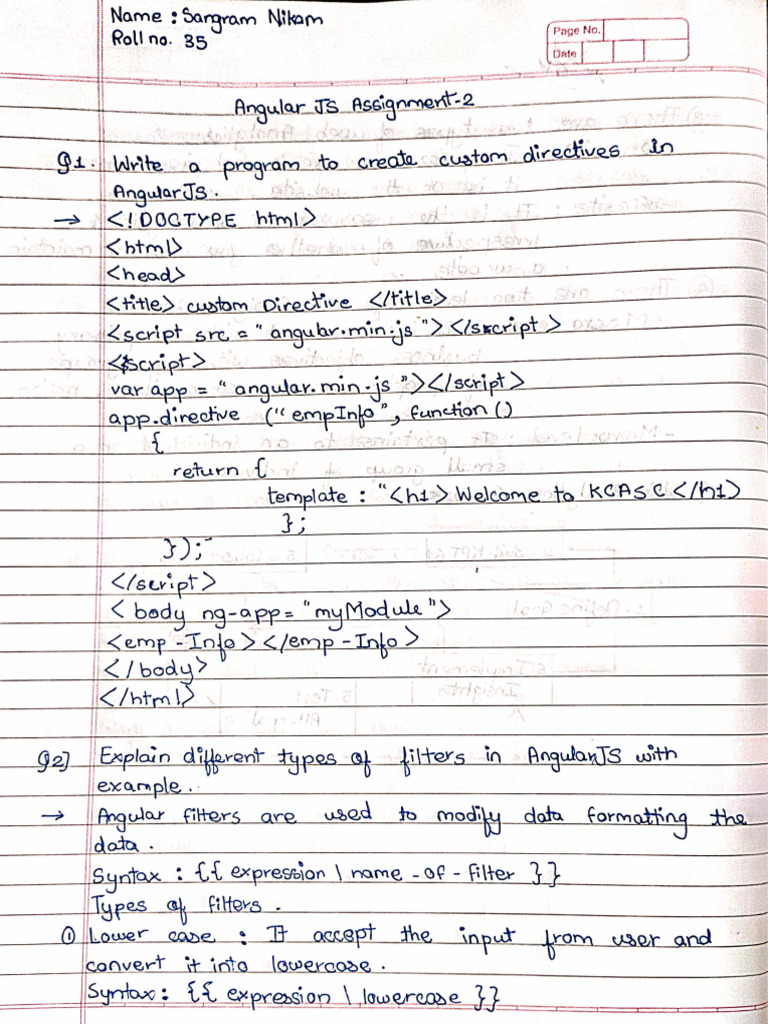 Name : Sangram Nikam
Roll no. 35
Page No.
Date
Angular JS Assignment-2
Q1. Write a program to create custom directives in
AngularJS.
→ <!DOCTYPE html>
<html>
<head>
<title> custom Directive </title>
<script src = "angular.min.js"></script>
<script>
var app = "angular.min.js"></script>
app.directive ("empInfo", function ()
{
return {
template : "<h1> Welcome to KCASC</h1>
};
});
</script>
<body ng-app= "myModule">
<emp-Info></emp-Info>
</body>
</html>
Q2] Explain different types of filters in AngularJS with
example.
→ Angular filters are used to modify data formatting the
data.
Syntax : {{ expression | name-of-filter }}
Types of filters.
① Lower case : It accept the input from user and
convert it into lowercase.
Syntax: {{ expression | lowercase }}